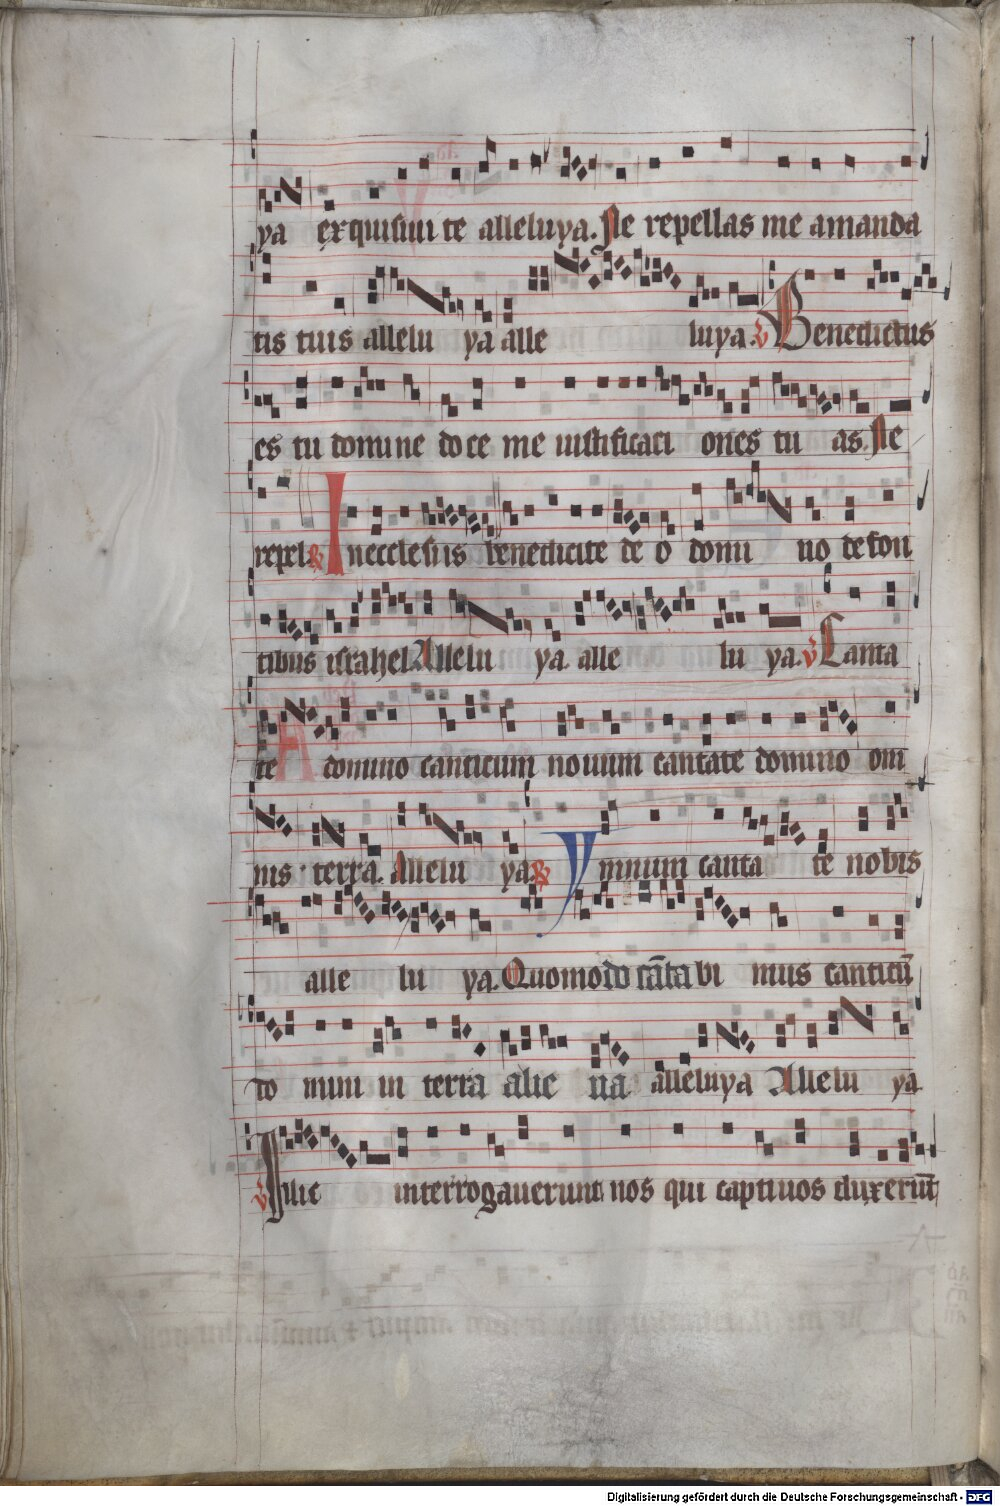 ya exquisiui te alleluya. Ne repellas me amanda
tis tuis allelu ya alle luya. V Benedictus
es tu domine doce me iustificaci ones tu as. Ne
repel. R In ecclesiis benedicite de o domi no de fon
tibus israhel Allelu ya. alle lu ya. V Canta
te domino canticum nouum cantate domino om
nis terra. Allelu ya R Ymnum canta te nobis
alle lu ya. Quomodo cātabi mus canticū
do mini in terra alie na alleluya Allelu ya
V Illic interrogauerunt nos qui captiuos duxerūt
Digitalisierung gefördert durch die Deutsche Forschungsgemeinschaft - DFG